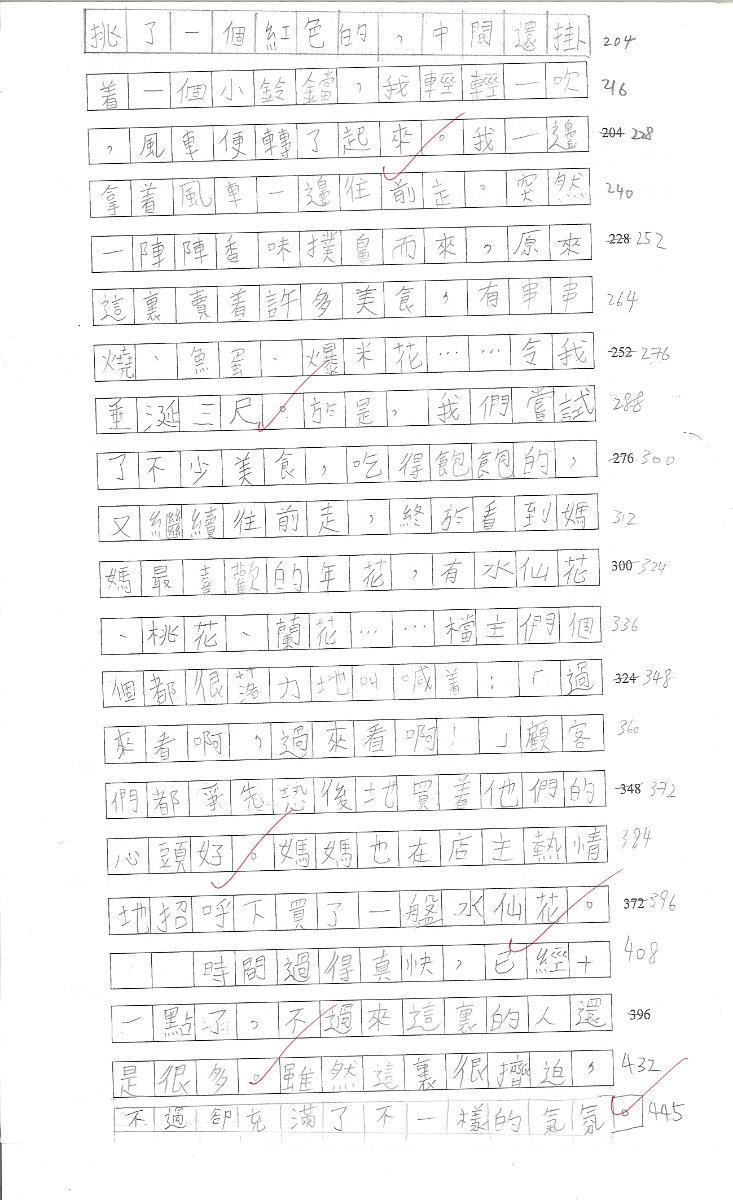 挑了一個紅色的，中間還掛 204
着一個小鈴鐺，我輕輕一吹 216
，風車便轉了起來。我一邊 204 228
拿着風車一邊往前走。突然 240
一陣陣香味撲鼻而來，原來 228 252
這裏賣着許多美食，有串串 264
燒、魚蛋、爆米花……令我 252 276
垂涎三尺。於是，我們嘗試 288
了不少美食，吃得飽飽的， 276 300
又繼續往前走，終於看到媽 312
媽最喜歡的年花，有水仙花 300 324
、桃花、蘭花……檔主們個 336
個都很落力地叫喊着：「過 324 348
來看啊，過來看啊！」顧客 360
們都爭先恐後地買着他們的 348 372
心頭好。媽媽也在店主熱情 384
地招呼下買了一盤水仙花。 372 396
時間過得真快，已經十 408
一點了，不過來這裏的人還 396
是很多。雖然這裏很擠迫， 432
不過卻充滿了不一樣的氣氛。 445